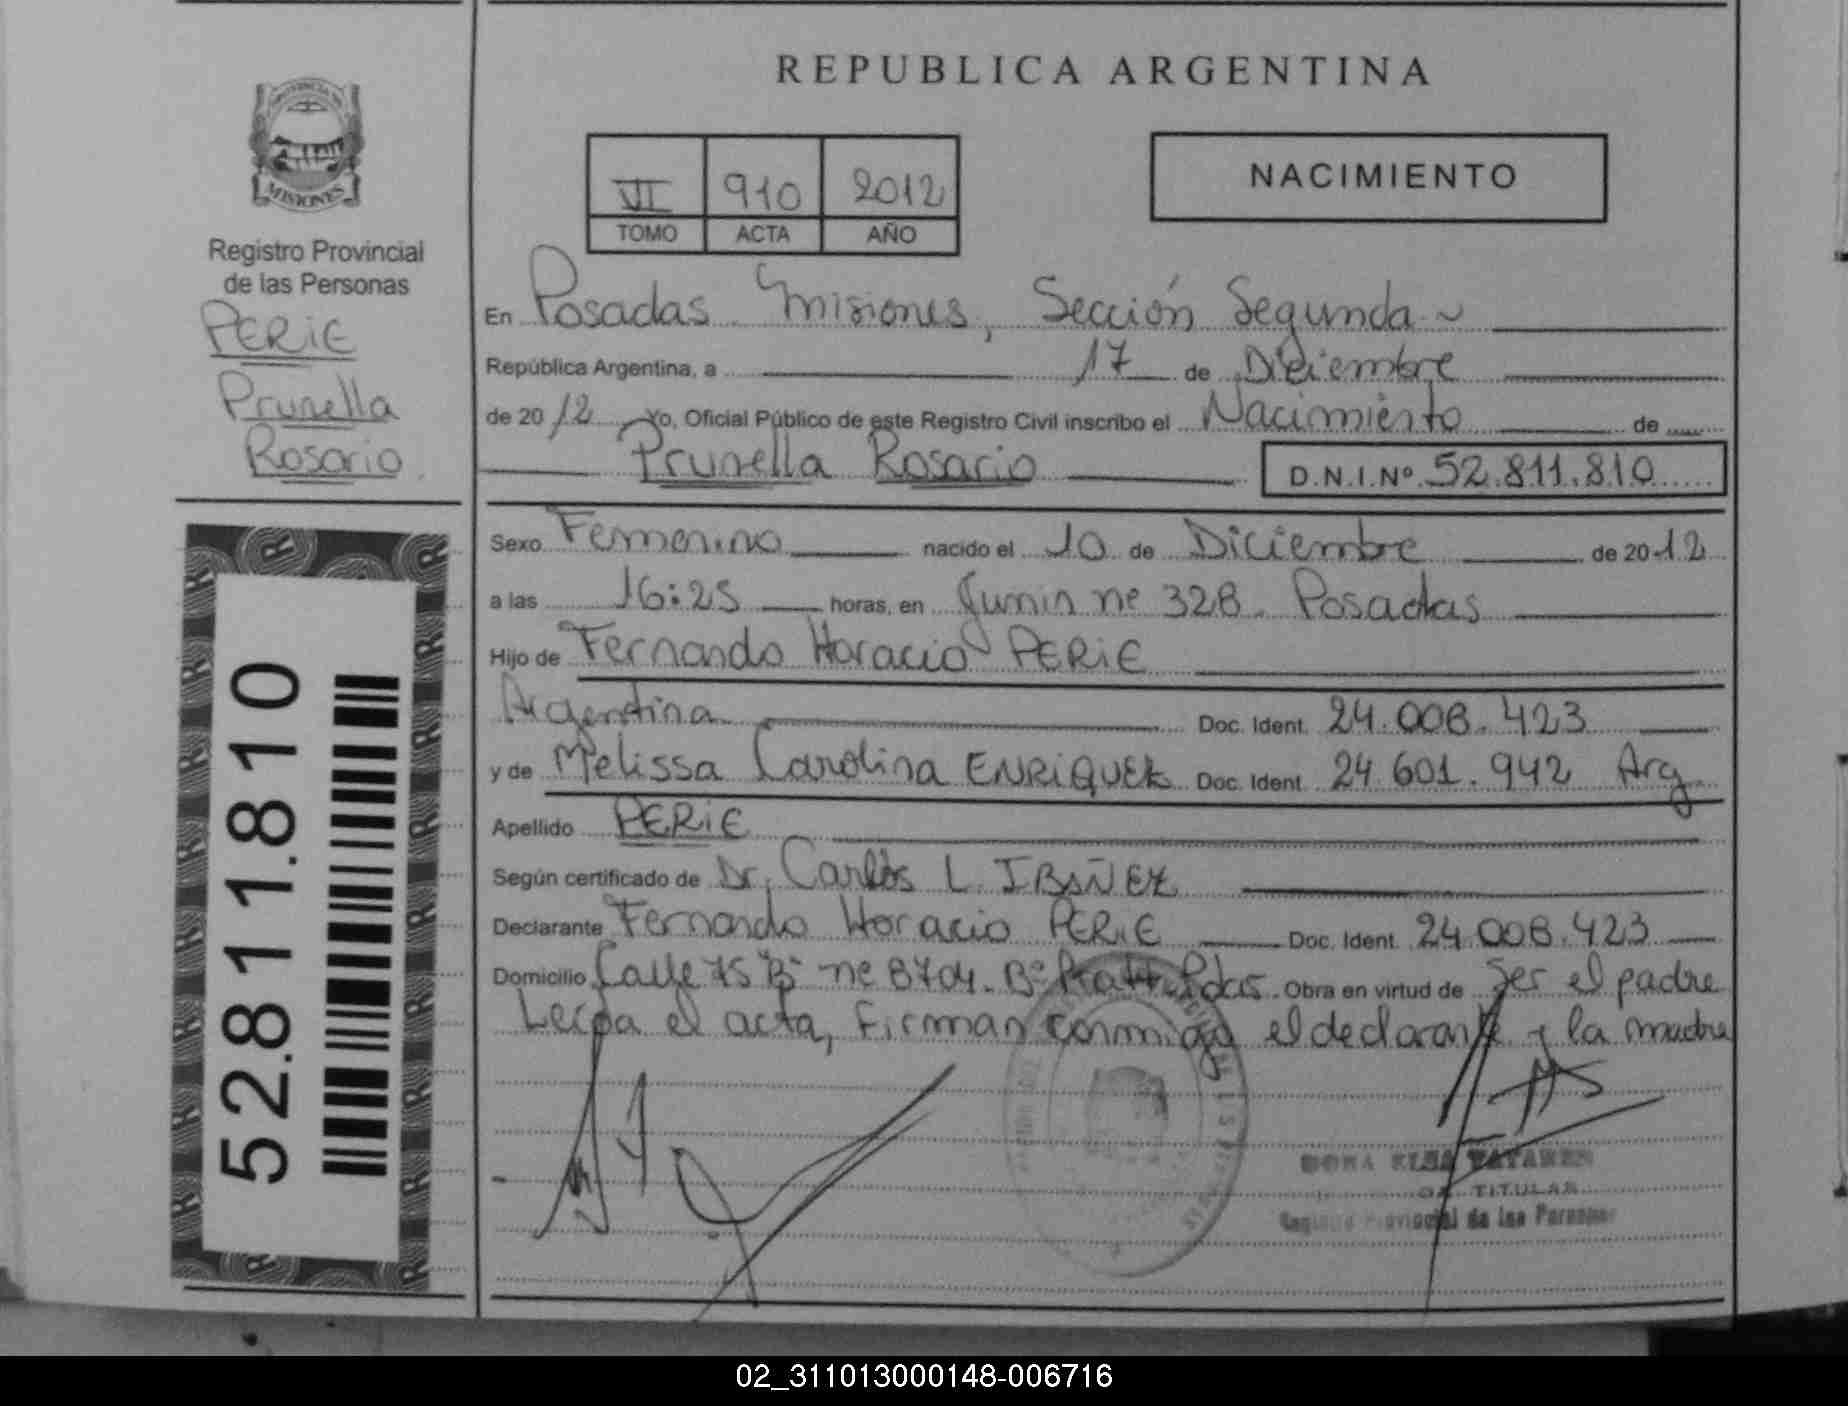 REPUBLICA ARGENTINA
MISIONES
Registro Provincial
de las Personas
PERIE
Prunella
Rosario
52.811.810
VI 910 2012
TOMO ACTA AÑO
NACIMIENTO
En Posadas Misiones, Sección Segunda
República Argentina, a 17 de Diciembre
de 2012 Yo, Oficial Público de este Registro Civil inscribo el Nacimiento de
Prunella Rosario D.N.I.Nº 52.811.810
Sexo Femenino nacido el 10 de Diciembre de 2012
a las 16:25 horas, en Junin nº 328. Posadas
Hijo de Fernando Horacio PERIE
Argentina Doc. Ident. 24.008.423
y de Melissa Carolina ENRIQUEZ Doc. Ident. 24.601.942 Arg
Apellido PERIE
Según certificado de Dr. Carlos L. IBAÑEZ
Declarante Fernando Horacio PERIE Doc. Ident. 24.008.423
Domicilio Calle 75 "B" nº 8704. Bº Pdas. Obra en virtud de Ser el padre
Leída el acta, Firman conmigo el declarante y la madre
ELSA
TITULAR
Registro Provincial de las Personas
02_311013000148-006716